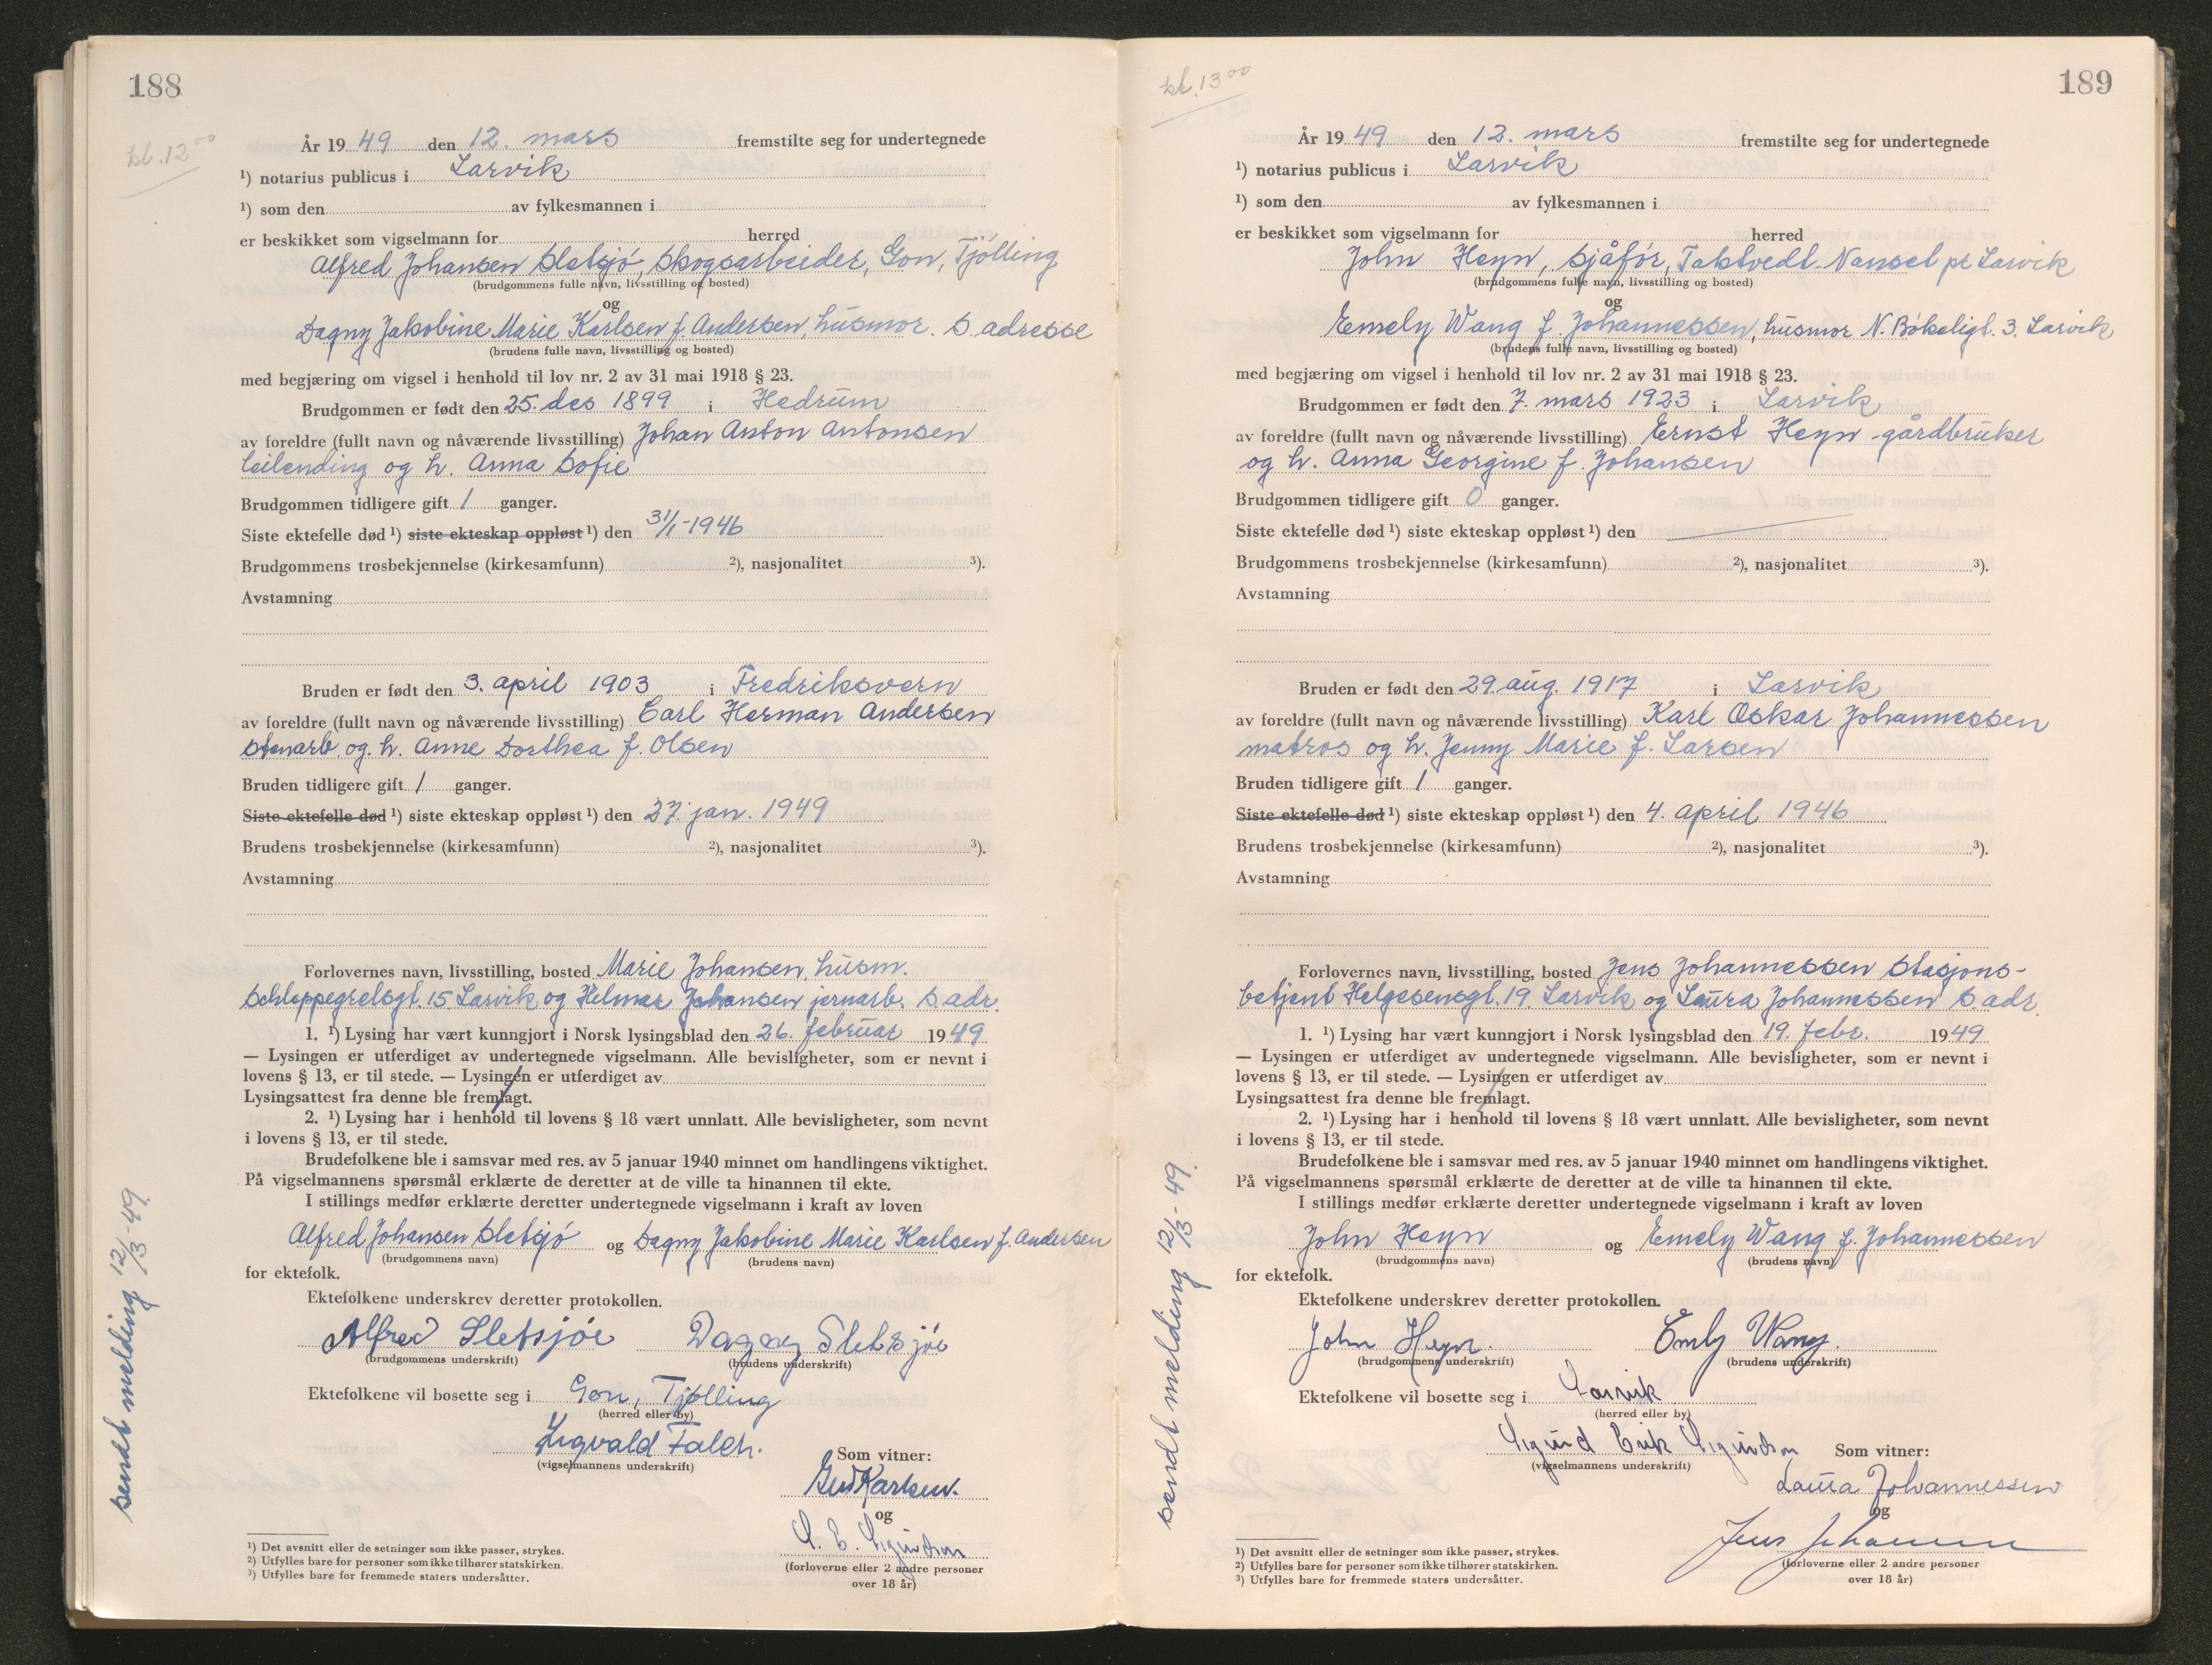 188
kl. 12.00
År 1949 den 12. mars fremstilte seg for undertegnede
¹) notarius publicus i Larvik
¹) som den av fylkesmannen i
er beskikket som vigselmann for herred
Alfred Johansen Sletsjö, skogsarbeider, Gon, Tjölling
(brudgommens fulle navn, livsstilling og bosted)
og
Dagny Jakobine Marie Karlsen f. Andersen, husmor. s. adresse
(brudens fulle navn, livsstilling og bosted)
med begjæring om vigsel i henhold til lov nr. 2 av 31 mai 1918 § 23.
Brudgommen er født den 25. des 1899 i Hedrum
av foreldre (fullt navn og nåværende livsstilling) Johan Anton Antonsen
leilending og h. Anna Sofie
Brudgommen tidligere gift 1 ganger.
Siste ektefelle død ¹) siste ekteskap oppløst ¹) den 31/1-1946
Brudgommens trosbekjennelse (kirkesamfunn) ²), nasjonalitet ³).
Avstamning
Bruden er født den 3. april 1903 i Fredriksvern
av foreldre (fullt navn og nåværende livsstilling) Carl Herman Andersen
stenarb. og. h. Anne Dorthea f. Olsen
Bruden tidligere gift 1 ganger.
Siste ektefelle død ¹) siste ekteskap oppløst ¹) den 27. jan. 1949
Brudens trosbekjennelse (kirkesamfunn) ²), nasjonalitet ³).
Avstamning
Forlovernes navn, livsstilling, bosted Marie Johansen, husm.
Schleppegrelsgt. 15 Larvik og Helmar Johansen jernarb. s. adr.
1. ¹) Lysing har vært kunngjort i Norsk lysingsblad den 26. februar 1949
— Lysingen er utferdiget av undertegnede vigselmann. Alle bevisligheter, som er nevnt i
lovens § 13, er til stede. — Lysingen er utferdiget av
Lysingsattest fra denne ble fremlagt.
2. ¹) Lysing har i henhold til lovens § 18 vært unnlatt. Alle bevisligheter, som nevnt
i lovens § 13, er til stede.
Brudefolkene ble i samsvar med res. av 5 januar 1940 minnet om handlingens viktighet.
På vigselmannens spørsmål erklærte de deretter at de ville ta hinannen til ekte.
I stillings medfør erklærte deretter undertegnede vigselmann i kraft av loven
Alfred Johansen Sletsjö og Dagny Jakobine Marie Karlsen f. Andersen
(brudgommens navn) (brudens navn)
for ektefolk.
Ektefolkene underskrev deretter protokollen.
Alfred Sletsjøe Dagny Sletsjøe
(brudgommens underskrift) (brudens underskrift)
Ektefolkene vil bosette seg i Gon, Tjølling
(herred eller by)
Sigvald Falch.
(vigselmannens underskrift)
Som vitner:
Karlsen.
og
S. E. Sigurdson
(forloverne eller 2 andre personer
over 18 år)
¹) Det avsnitt eller de setninger som ikke passer, strykes.
²) Utfylles bare for personer som ikke tilhører statskirken.
³) Utfylles bare for fremmede staters undersåtter.
sendt melding 12/3-49.
189
kl. 13.00
År 1949 den 12. mars fremstilte seg for undertegnede
¹) notarius publicus i Larvik
¹) som den av fylkesmannen i
er beskikket som vigselmann for herred
John Heyn, sjåför, Taktvedt-Nanset pr Larvik
(brudgommens fulle navn, livsstilling og bosted)
og
Emely Wang f. Johannessen, husmor N. Bökeligt. 3. Larvik
(brudens fulle navn, livsstilling og bosted)
med begjæring om vigsel i henhold til lov nr. 2 av 31 mai 1918 § 23.
Brudgommen er født den 7. mars 1923 i Larvik
av foreldre (fullt navn og nåværende livsstilling) Ernst Heyn - gårdbruker
og h. Anna Georgine f. Johansen
Brudgommen tidligere gift 0 ganger.
Siste ektefelle død ¹) siste ekteskap oppløst ¹) den
Brudgommens trosbekjennelse (kirkesamfunn) ²), nasjonalitet ³).
Avstamning
Bruden er født den 29. aug. 1917 i Larvik
av foreldre (fullt navn og nåværende livsstilling) Karl Oskar Johannessen
matros og h. Jenny Marie f. Larsen
Bruden tidligere gift 1 ganger.
Siste ektefelle død ¹) siste ekteskap oppløst ¹) den 4. april 1946
Brudens trosbekjennelse (kirkesamfunn) ²), nasjonalitet ³).
Avstamning
Forlovernes navn, livsstilling, bosted Jens Johannessen stasjons-
betjent Helgesensgt. 19. Larvik og Laura Johannessen s. adr.
1. ¹) Lysing har vært kunngjort i Norsk lysingsblad den 19. febr. 1949
— Lysingen er utferdiget av undertegnede vigselmann. Alle bevisligheter, som er nevnt i
lovens § 13, er til stede. — Lysingen er utferdiget av
Lysingsattest fra denne ble fremlagt.
2. ¹) Lysing har i henhold til lovens § 18 vært unnlatt. Alle bevisligheter, som nevnt
i lovens § 13, er til stede.
Brudefolkene ble i samsvar med res. av 5 januar 1940 minnet om handlingens viktighet.
På vigselmannens spørsmål erklærte de deretter at de ville ta hinannen til ekte.
I stillings medfør erklærte deretter undertegnede vigselmann i kraft av loven
John Heyn og Emely Wang f. Johannessen
(brudgommens navn) (brudens navn)
for ektefolk.
Ektefolkene underskrev deretter protokollen.
John Heyn. Emly Wang.
(brudgommens underskrift) (brudens underskrift)
Ektefolkene vil bosette seg i Larvik
(herred eller by)
Sigurd Erik Sigurdson
(vigselmannens underskrift)
Som vitner:
Laura Johannessen
og
Jens Johannessen
(forloverne eller 2 andre personer
over 18 år)
¹) Det avsnitt eller de setninger som ikke passer, strykes.
²) Utfylles bare for personer som ikke tilhører statskirken.
³) Utfylles bare for fremmede staters undersåtter.
sendt melding 12/3-49.